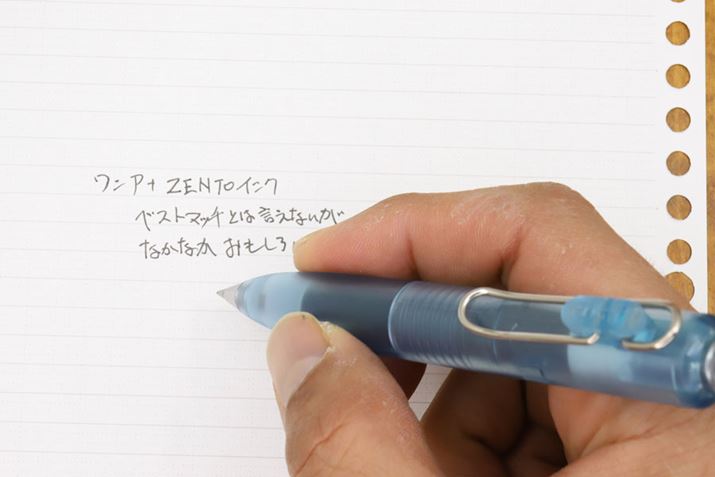 ワンP+ ZENTOインク
ベストマッチとは言えないが
なかなかおもしろ